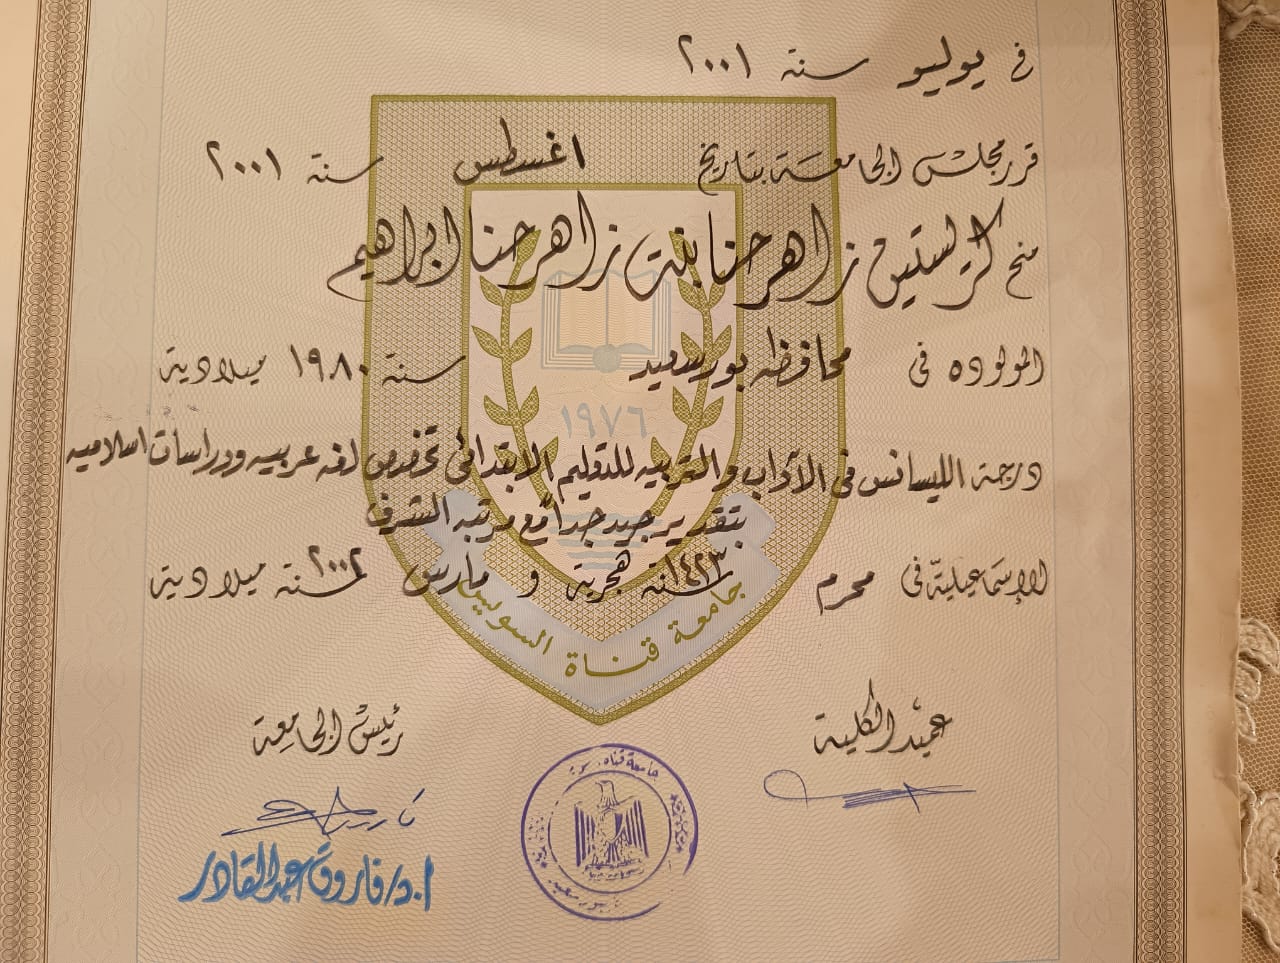 في يوليو سنة ٢٠٠١
قرر مجلس الجامعة بتاريخ اغسطس سنة ٢٠٠١
منح كريستين زاهر حنا بنت زاهر حنا ابراهيم
المولوده في محافظه بورسعيد سنة ١٩٨٠ ميلادية
١٩٧٦
درجة الليسانس في الآداب والتربيه للتعليم الابتدائي تخصص لغه عربيه ودراسات اسلاميه
بتقدير جيد جداً مع مرتبه الشرف
الإسماعيلية في محرم سنة ١٤٢٣ هجرية و مارس سنة ٢٠٠٢ ميلادية
جامعة قناة السويس
عميد الكلية
رئيس الجامعة
جامعة قناه
أ.د/ فاروق عبدالقادر